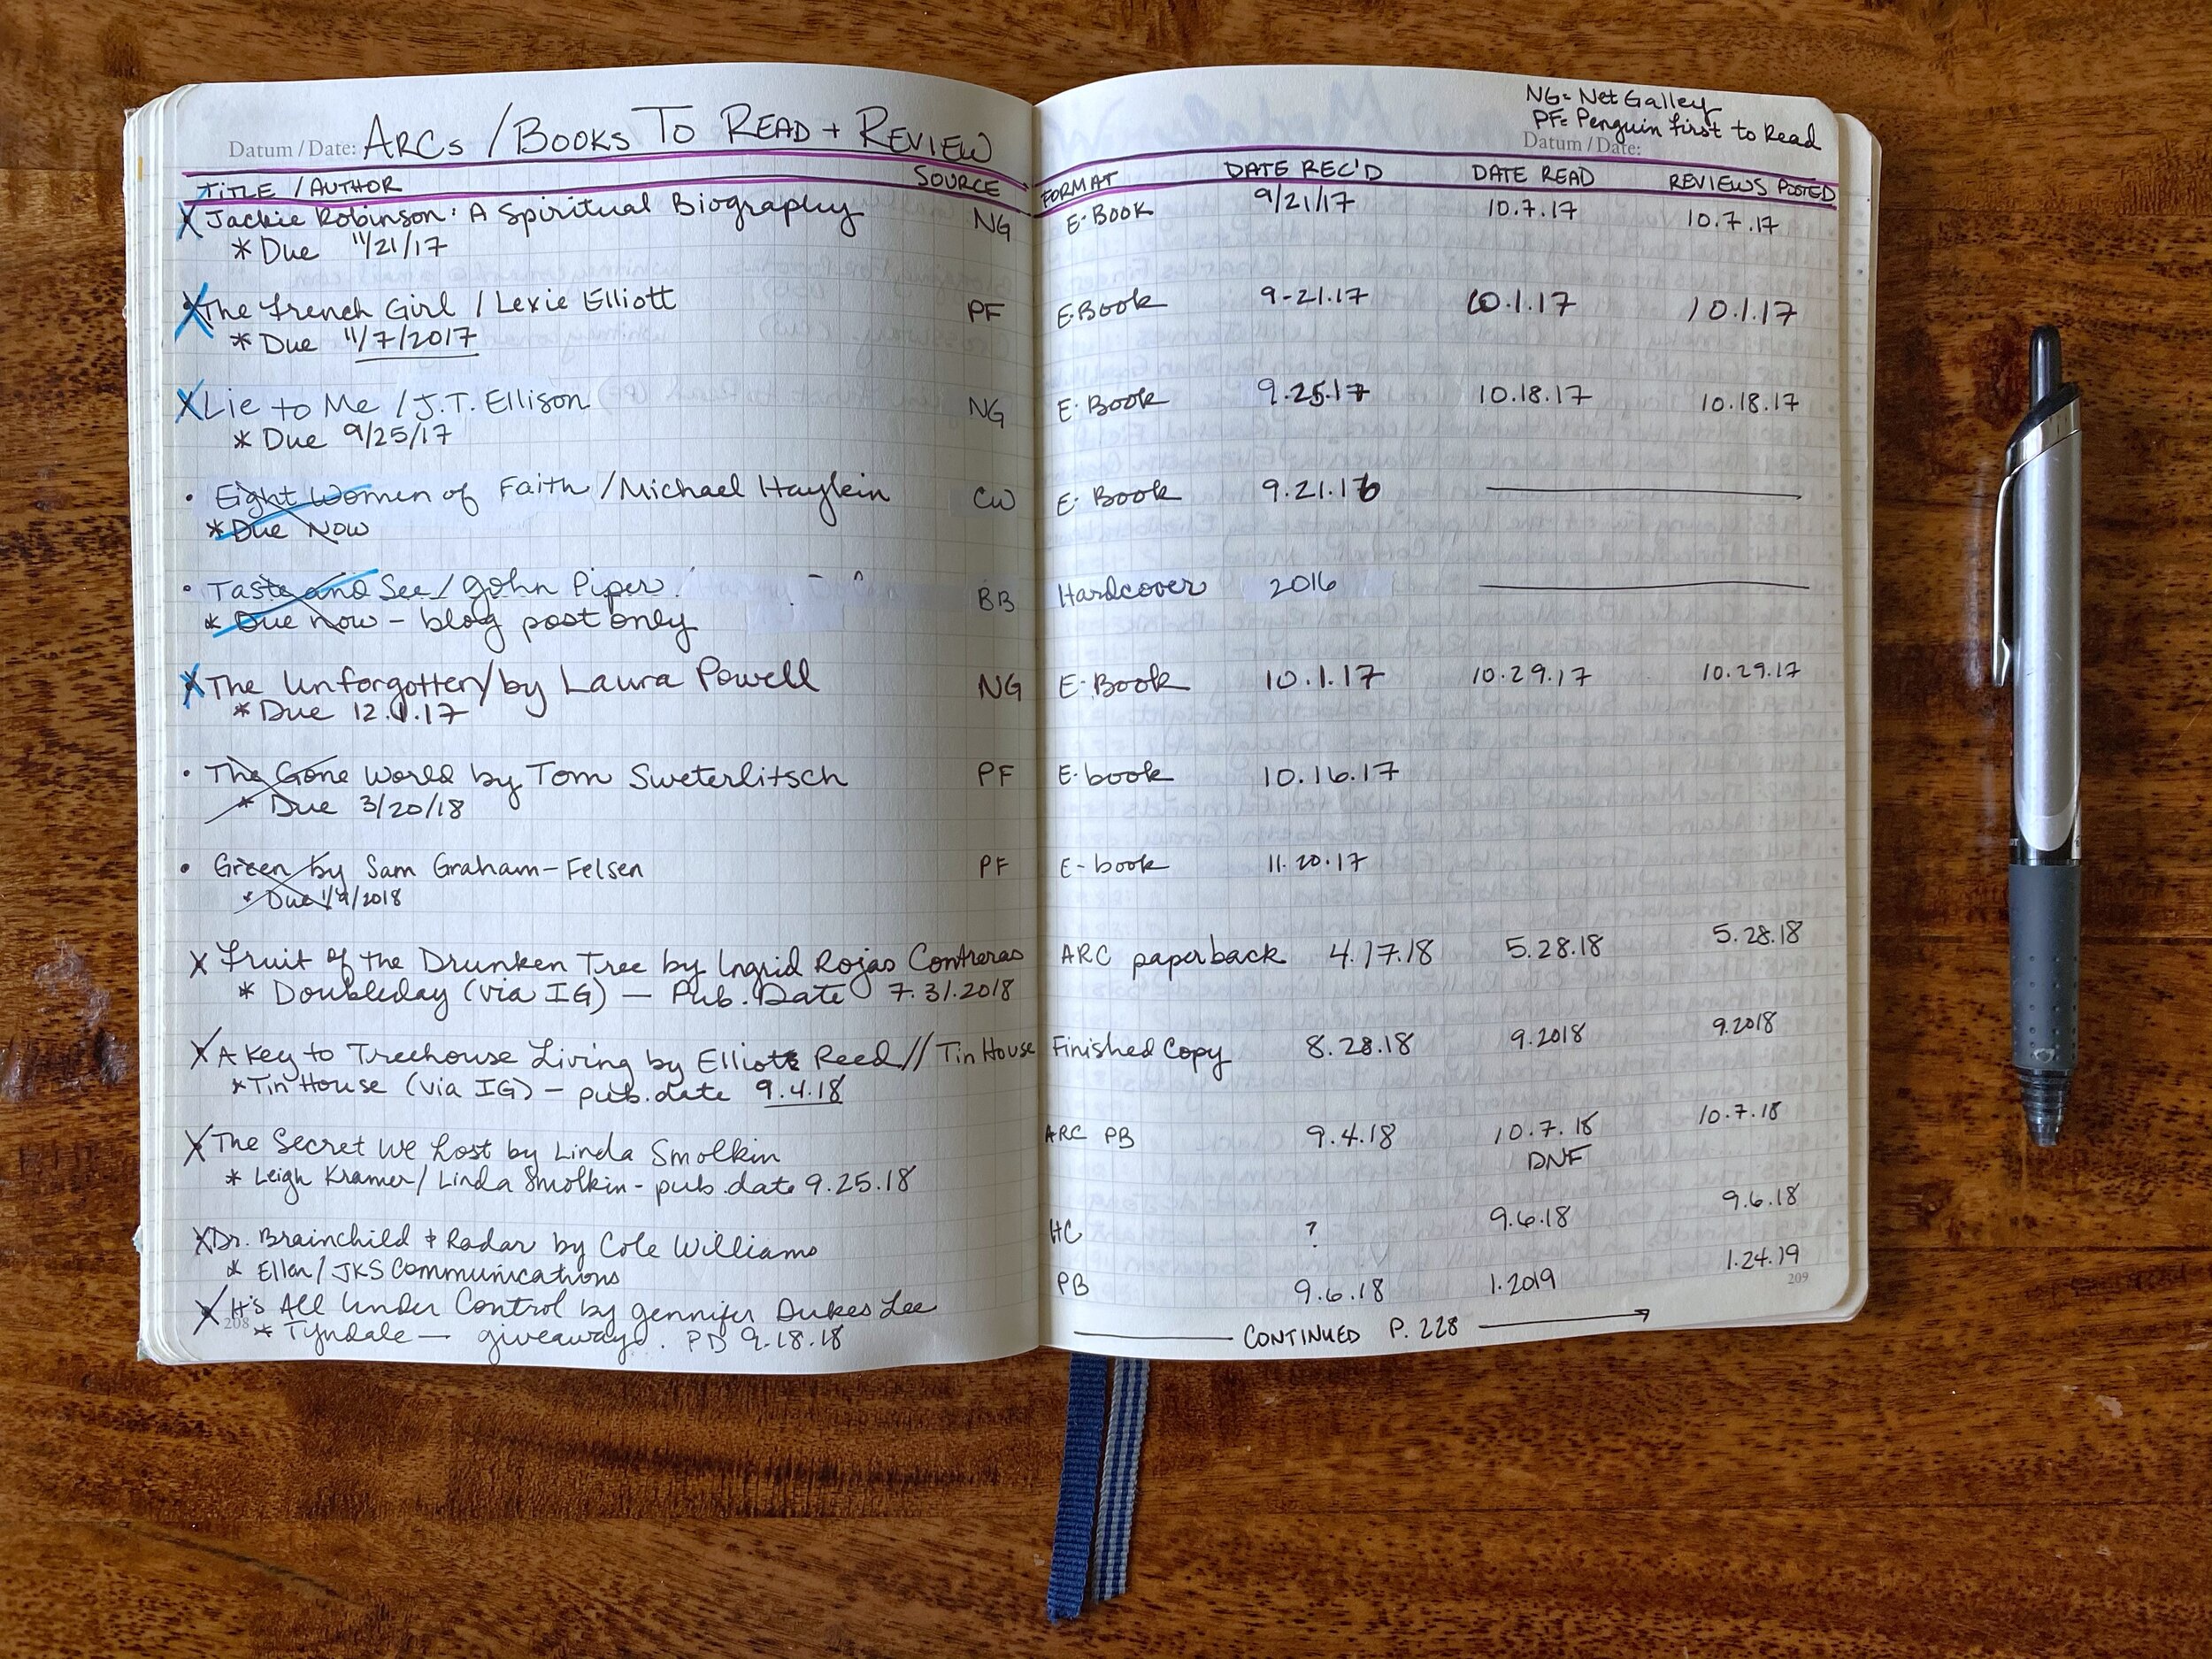 Datum / Date: ARCs / BOOKS TO READ + REVIEW
TITLE / AUTHOR SOURCE
X Jackie Robinson: A Spiritual Biography NG
* Due 11/21/17
X The French Girl / Lexie Elliott PF
* Due 11/7/2017
X Lie to Me / J.T. Ellison NG
* Due 9/25/17
• Eight Women of Faith / Michael Haykin CW
* Due Now
• Taste and See / John Piper BB
* Due now - blog post only
X The Unforgotten / by Laura Powell NG
* Due 12.1.17
• The Gone World by Tom Sweterlitsch PF
* Due 3/20/18
• Green by Sam Graham-Felsen PF
* Due 1/9/2018
X Fruit of the Drunken Tree by Ingrid Rojas Contreras
* Doubleday (via IG) — Pub. Date 7.31.2018
X A Key to Treehouse Living by Elliot Reed // Tin House
* Tin House (via IG) - pub. date 9.4.18
X The Secret We Lost by Linda Smolkin
* Leigh Kramer / Linda Smolkin - pub. date 9.25.18
X Dr. Brainchild & Radar by Cole Williams
* Ellen / JKS Communications
X It's All Under Control by Jennifer Dukes Lee
208 * Tyndale — giveaway. PD 9.18.18
NG= Net Galley
PF= Penguin First to Read
Datum / Date:
FORMAT DATE REC'D DATE READ REVIEWS POSTED
E-BOOK 9/21/17 10.7.17 10.7.17
E-Book 9-21.17 10.1.17 10.1.17
E-Book 9.25.17 10.18.17 10.18.17
E-Book 9.21.16
Hardcover 2016
E-Book 10.1.17 10.29.17 10.29.17
E-book 10.16.17
E-book 11.20.17
ARC paperback 4.17.18 5.28.18 5.28.18
Finished Copy 8.28.18 9.2018 9.2018
ARC PB 9.4.18 10.7.18 10.7.18
DNF
HC ? 9.6.18 9.6.18
PB 9.6.18 1.2019 1.24.19
209
CONTINUED P. 228